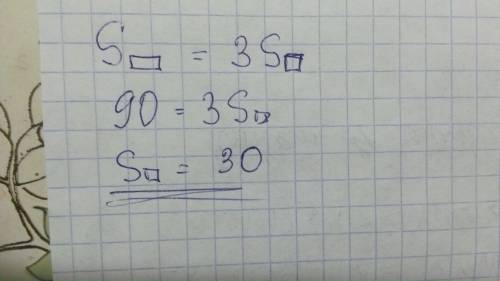 S▭ = 3S□
90 = 3S□
S□ = 30